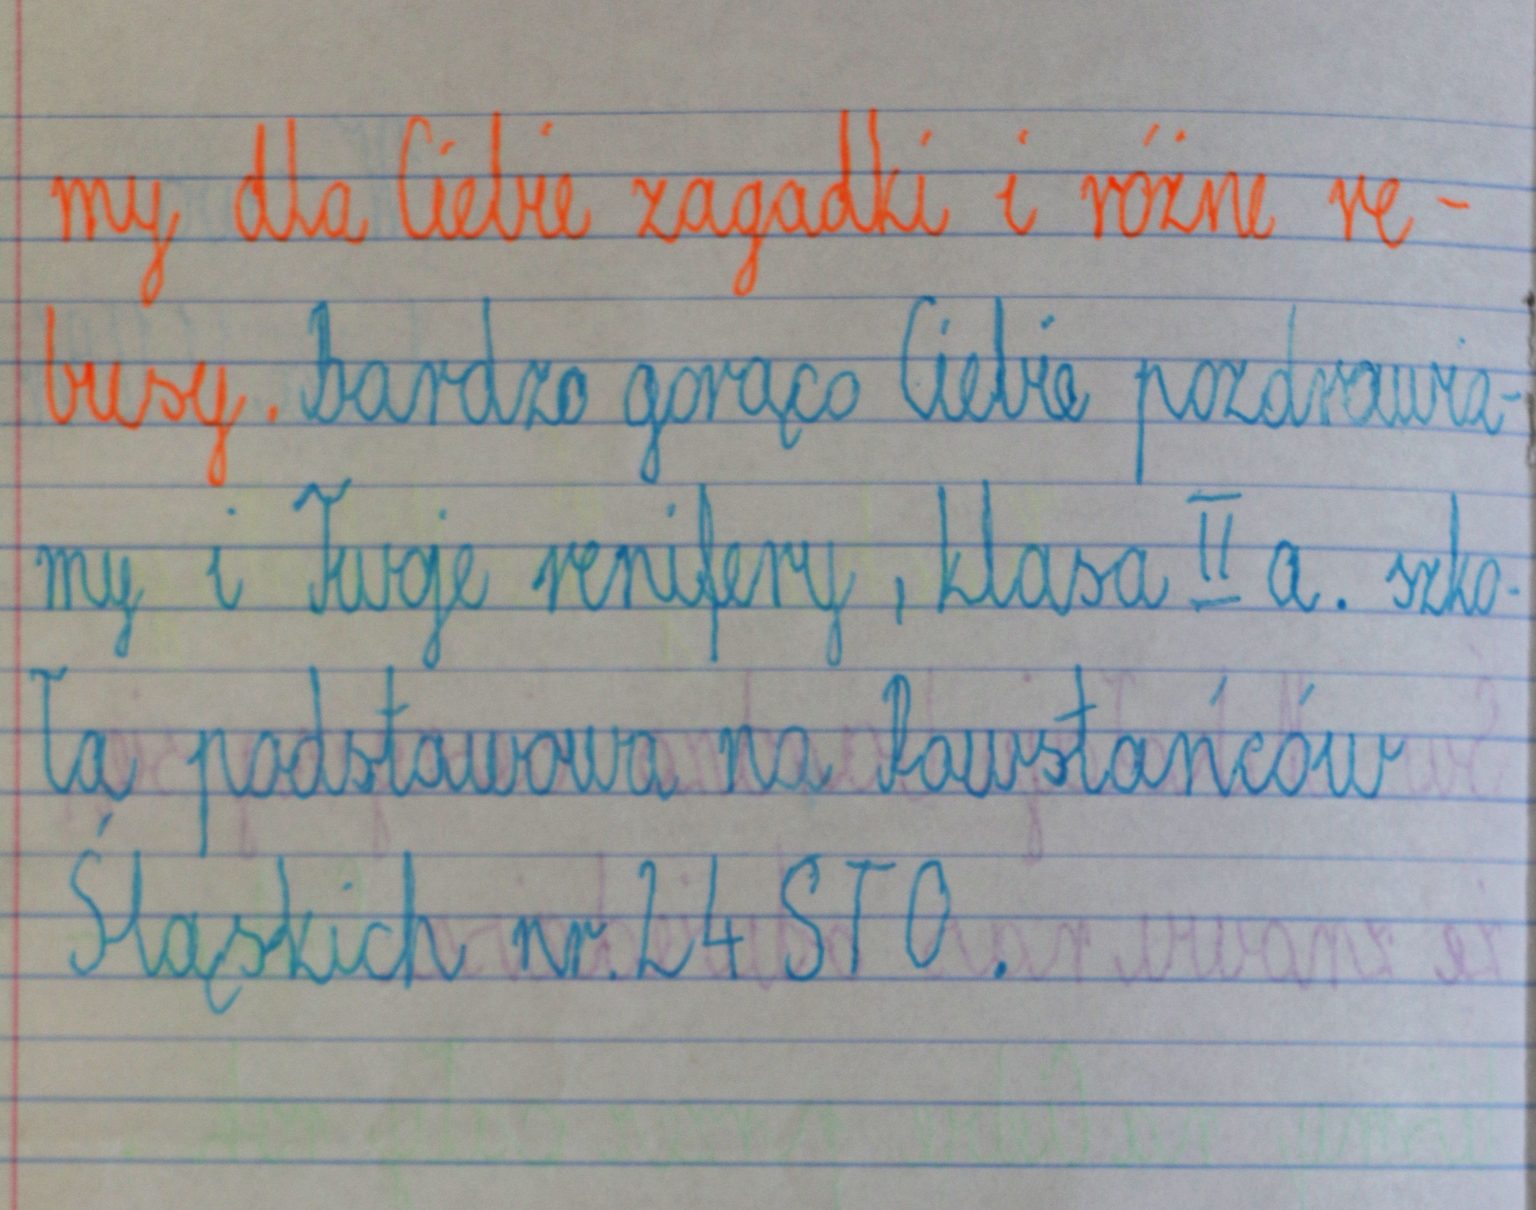 my dla Ciebie zagadki i różne re-
busy. Bardzo gorąco Ciebie pozdrawia-
my i Twoje renifery, klasa II a. szko-
ła podstawowa na Powstańców
Śląskich nr. 24 STO.